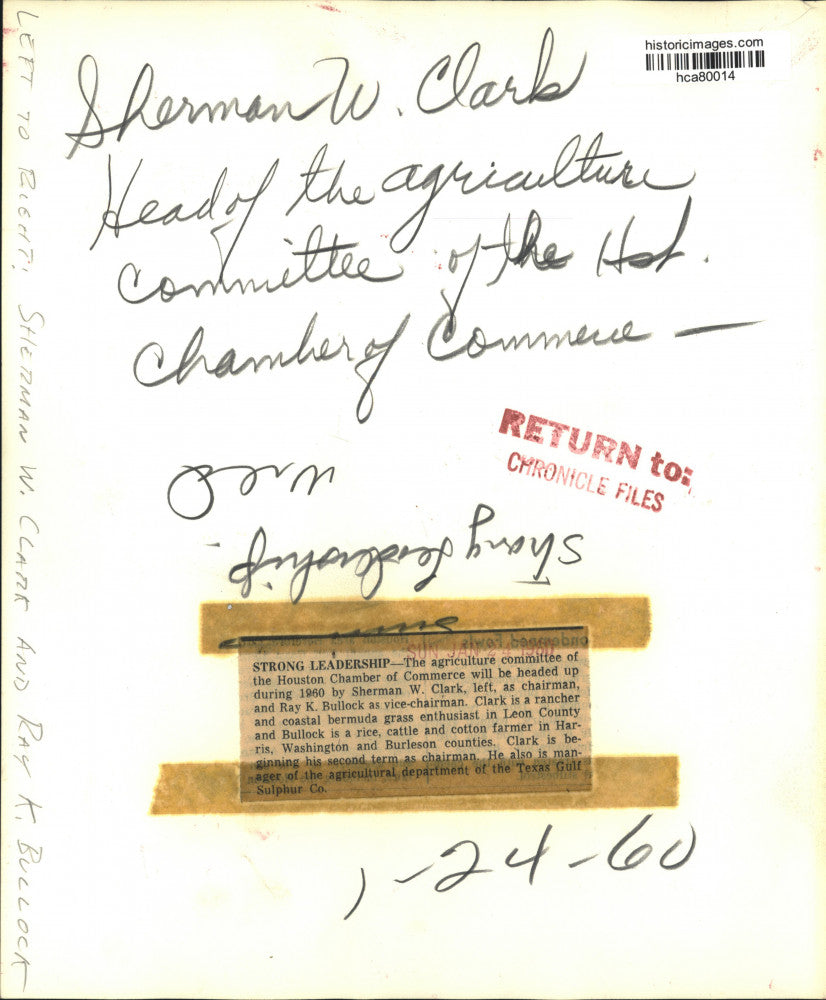 historicimages.com
hca80014
Sherman W. Clark
Head of the agriculture
committee of the Hst.
Chamber of Commerce —
RETURN to:
CHRONICLE FILES
Strong Leadership
SUN JAN 24 1960
STRONG LEADERSHIP—The agriculture committee of
the Houston Chamber of Commerce will be headed up
during 1960 by Sherman W. Clark, left, as chairman,
and Ray K. Bullock as vice-chairman. Clark is a rancher
and coastal bermuda grass enthusiast in Leon County
and Bullock is a rice, cattle and cotton farmer in Har-
ris, Washington and Burleson counties. Clark is be-
ginning his second term as chairman. He also is man-
ager of the agricultural department of the Texas Gulf
Sulphur Co.
1-24-60
LEFT TO RIGHT: SHERMAN W. CLARK AND RAY K. BULLOCK